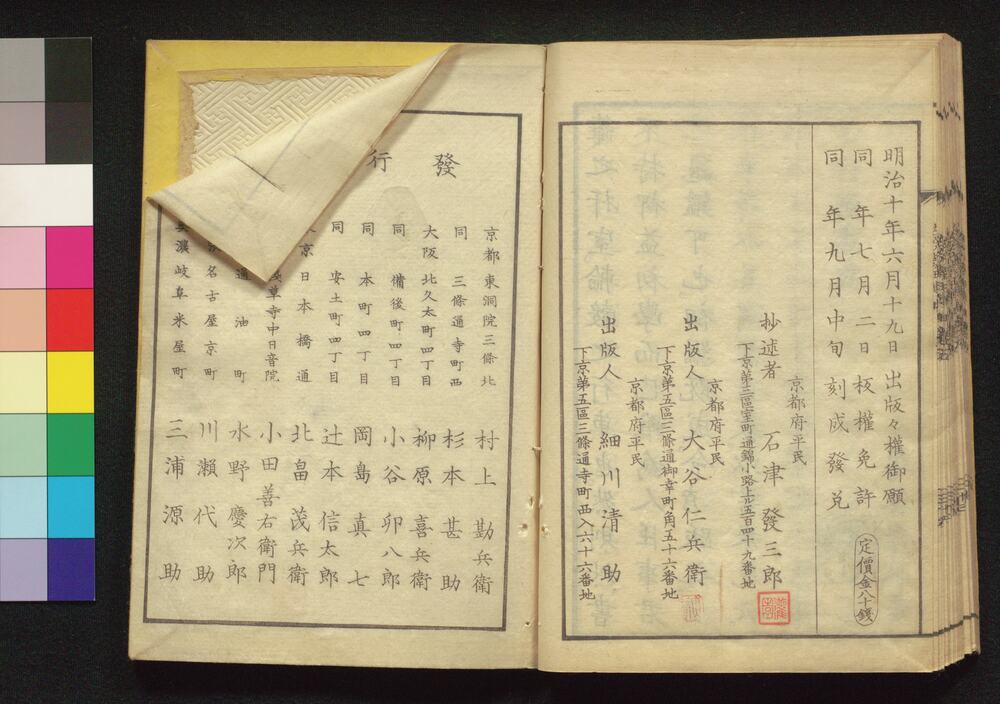 明治十年六月十九日 出版々權御願
同 年七月二日 板權免許
同 年九月中旬 刻成發兌
定價金八十錢
京都府平民
抄述者 石津發三郎
下京第三區室町通錦小路上ル五百四十九番地
京都府平民
出版人 大谷仁兵衛
下京第五區三條通御幸町角五十六番地
京都府平民
出版人 細川清助
下京第五區三條通寺町西入六十六番地
發行
京都 東洞院三條北 村上勘兵衛
同 三條通寺町西 杉本甚助
大阪 北久太町四丁目 柳原喜兵衛
同 備後町四丁目 小谷卯八郎
同 本町四丁目 岡島真七
同 安土町四丁目 辻本信太郎
京 日本橋通 北畠茂兵衛
草寺中日音院 小田善右衛門
通油町 水野慶次郎
名古屋京町 川瀬代助
濃岐阜米屋町 三浦源助